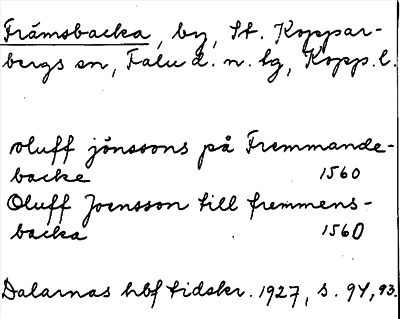 Främsbacka, by, St. Koppar-
bergs sn, Falu d. n. lg, Kopp. l.
oluff jönssons på Fremmande-
backe 1560
Oluff Joensson till fremmens-
backa 1560
Dalarnas hbf tidskr. 1927, s. 94, 93.